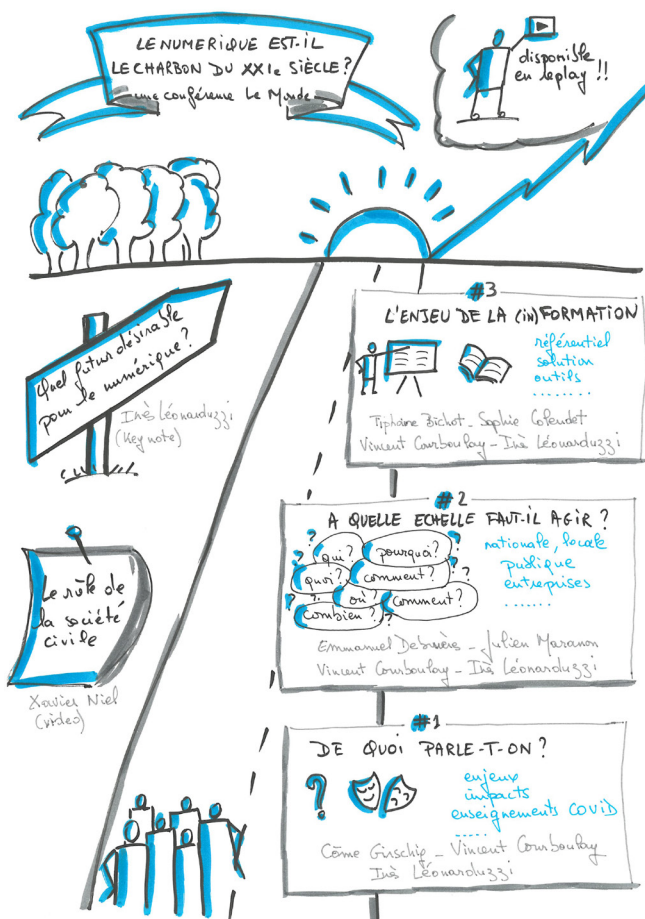 LE NUMERIQUE EST-IL
LE CHARBON DU XXIe SIÈCLE ?
une conférence Le Monde
disponible
en replay !!
Quel futur désirable
pour le numérique ?
Inès Léonarduzzi
(Keynote)
Le rôle de
la société
civile
Xavier Niel
(video)
#3
L'ENJEU DE LA (in)FORMATION
référentiel
solution
outils
........
Tiphaine Bichot - Sophie
Vincent Courboulay - Inès Léonarduzzi
#2
A QUELLE ECHELLE FAUT-IL AGIR ?
qui ?
pourquoi ?
quoi ?
comment ?
où ?
combien ?
comment ?
nationale, locale
publique
entreprises
.......
Emmanuel - Julien Maranon
Vincent Courboulay - Inès Léonarduzzi
#1
DE QUOI PARLE-T-ON ?
?
enjeux
impacts
enseignements COVID
.....
Côme Girschig - Vincent Courboulay
Inès Léonarduzzi